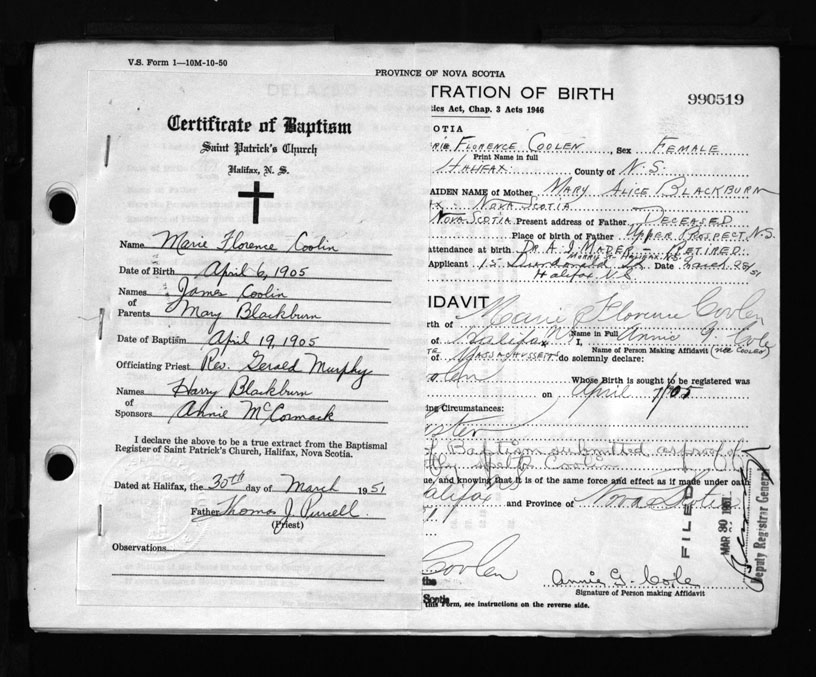 V.S. Form 1—10M-10-50
Certificate of Baptism
Saint Patrick's Church
Halifax, N. S.
Name Marie Florence Coolin
Date of Birth April 6, 1905
Names James Coolin
of
Parents Mary Blackburn
Date of Baptism April 19, 1905
Officiating Priest Rev. Gerald Murphy
Names Harry Blackburn
of
Sponsors Annie McCormack
I declare the above to be a true extract from the Baptismal
Register of Saint Patrick's Church, Halifax, Nova Scotia.
Dated at Halifax, the 30th day of March 1951
Father Thomas J. Purcell
(Priest)
Observations
PROVINCE OF NOVA SCOTIA
TRATION OF BIRTH
990519
tics Act, Chap. 3 Acts 1946
OTIA
rie Florence Coolen, Sex Female
Print Name in full
Halifax County of N.S.
AIDEN NAME of Mother Mary Alice Blackburn
x. Nova Scotia
Nova Scotia Present address of Father Deceased
Place of birth of Father Upper Prospect N.S.
attendance at birth Dr. A. I. Mader - Retired
Morris St. Halifax N.S.
Applicant 15 St. Date March 28/51
Halifax N.S.
IDAVIT
rth of Marie Florence Coolen
of Halifax N.S. I, Annie G. Cole
Name in Full
Name of Person Making Affidavit (nee Coolen)
of Massachusetts do solemnly declare:
olen Whose Birth is sought to be registered was
on April 7/05
ing Circumstances:
ister
of Baptism submitted as proof of
Coolin
ue, and knowing that it is of the same force and effect as if made under oath
alifax and Province of Nova Scotia
FILED
MAR 30 1951
Deputy Registrar General
Coolen
the
Annie G. Cole
Signature of Person making Affidavit
Scotia
this Form, see instructions on the reverse side.